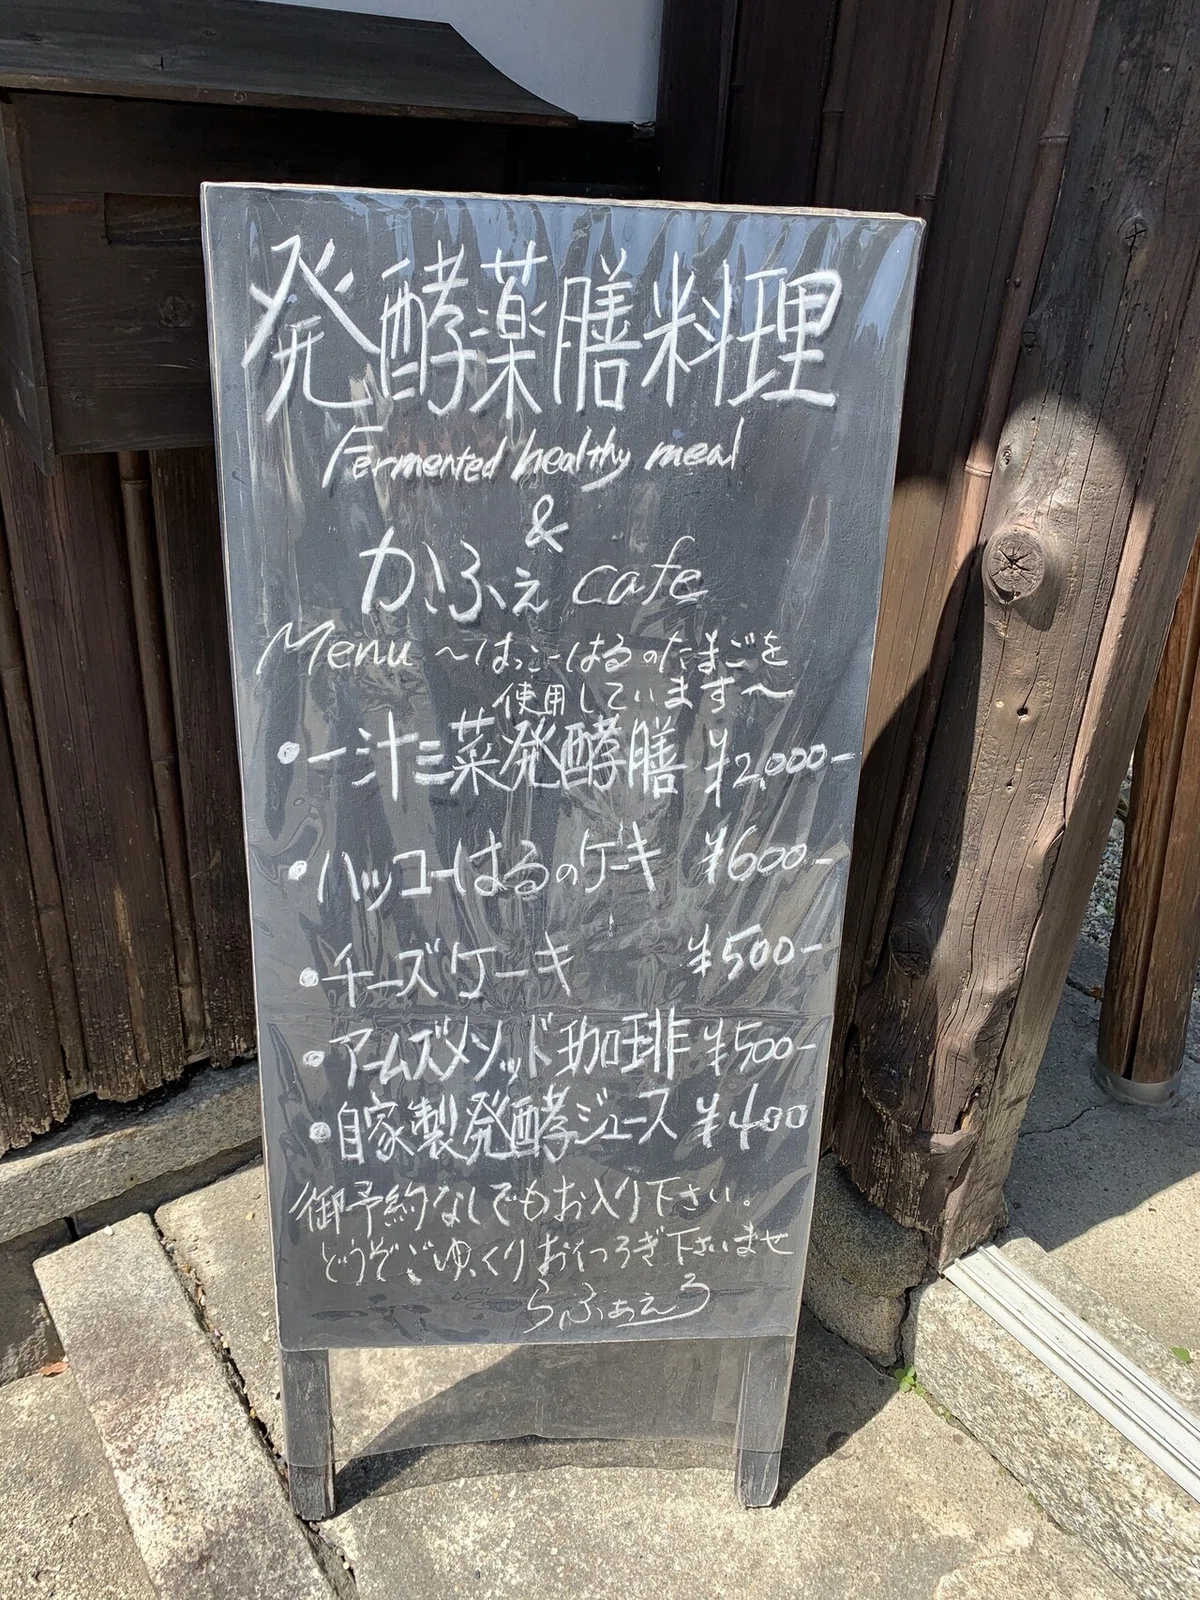 発酵薬膳料理
Fermented healthy meal
&
かふぇ cafe
Menu ~はっこーはるのたまごを
使用しています~
・一汁三菜発酵膳 ¥2,000-
・ハッコーはるのケーキ ¥600-
・チーズケーキ ¥500-
・アームズメソッド珈琲 ¥500-
・自家製発酵ジュース ¥400
御予約なしでもお入り下さい。
どうぞごゆっくりおくつろぎ下さいませ
らふぁえろ